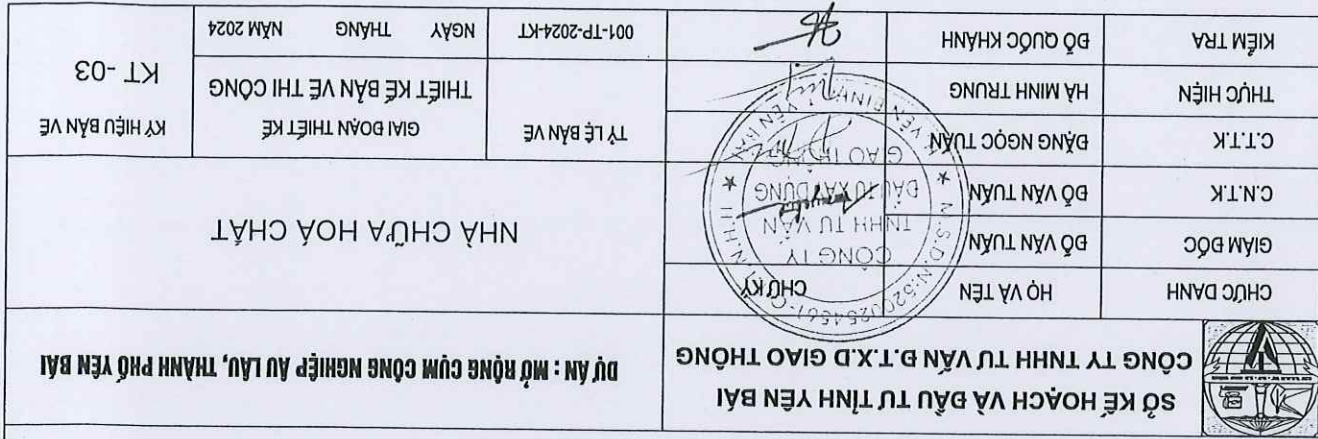 SỞ KẾ HOẠCH VÀ ĐẦU TƯ TỈNH YÊN BÁI
CÔNG TY TNHH TƯ VẤN Đ.T.X.D GIAO THÔNG
DỰ ÁN : MỞ RỘNG CỤM CÔNG NGHIỆP ÂU LÂU, THÀNH PHỐ YÊN BÁI
CHỨC DANH
HỌ VÀ TÊN
CHỮ KÝ
GIÁM ĐỐC
ĐỖ VĂN TUẤN
C.N.T.K
ĐỖ VĂN TUÂN
C.T.T.K
ĐẶNG NGỌC TUÂN
THỰC HIỆN
HÀ MINH TRUNG
KIỂM TRA
ĐỖ QUỐC KHÁNH
NHÀ CHỮA HOÁ CHẤT
TỶ LỆ BẢN VẼ
001-TP-2024-KT
GIAI ĐOẠN THIẾT KẾ
THIẾT KẾ BẢN VẼ THI CÔNG
NGÀY THÁNG NĂM 2024
KÝ HIỆU BẢN VẼ
KT -03
CÔNG TY
TNHH TƯ VẤN
ĐẦU TƯ XÂY DỰNG
GIAO THÔNG